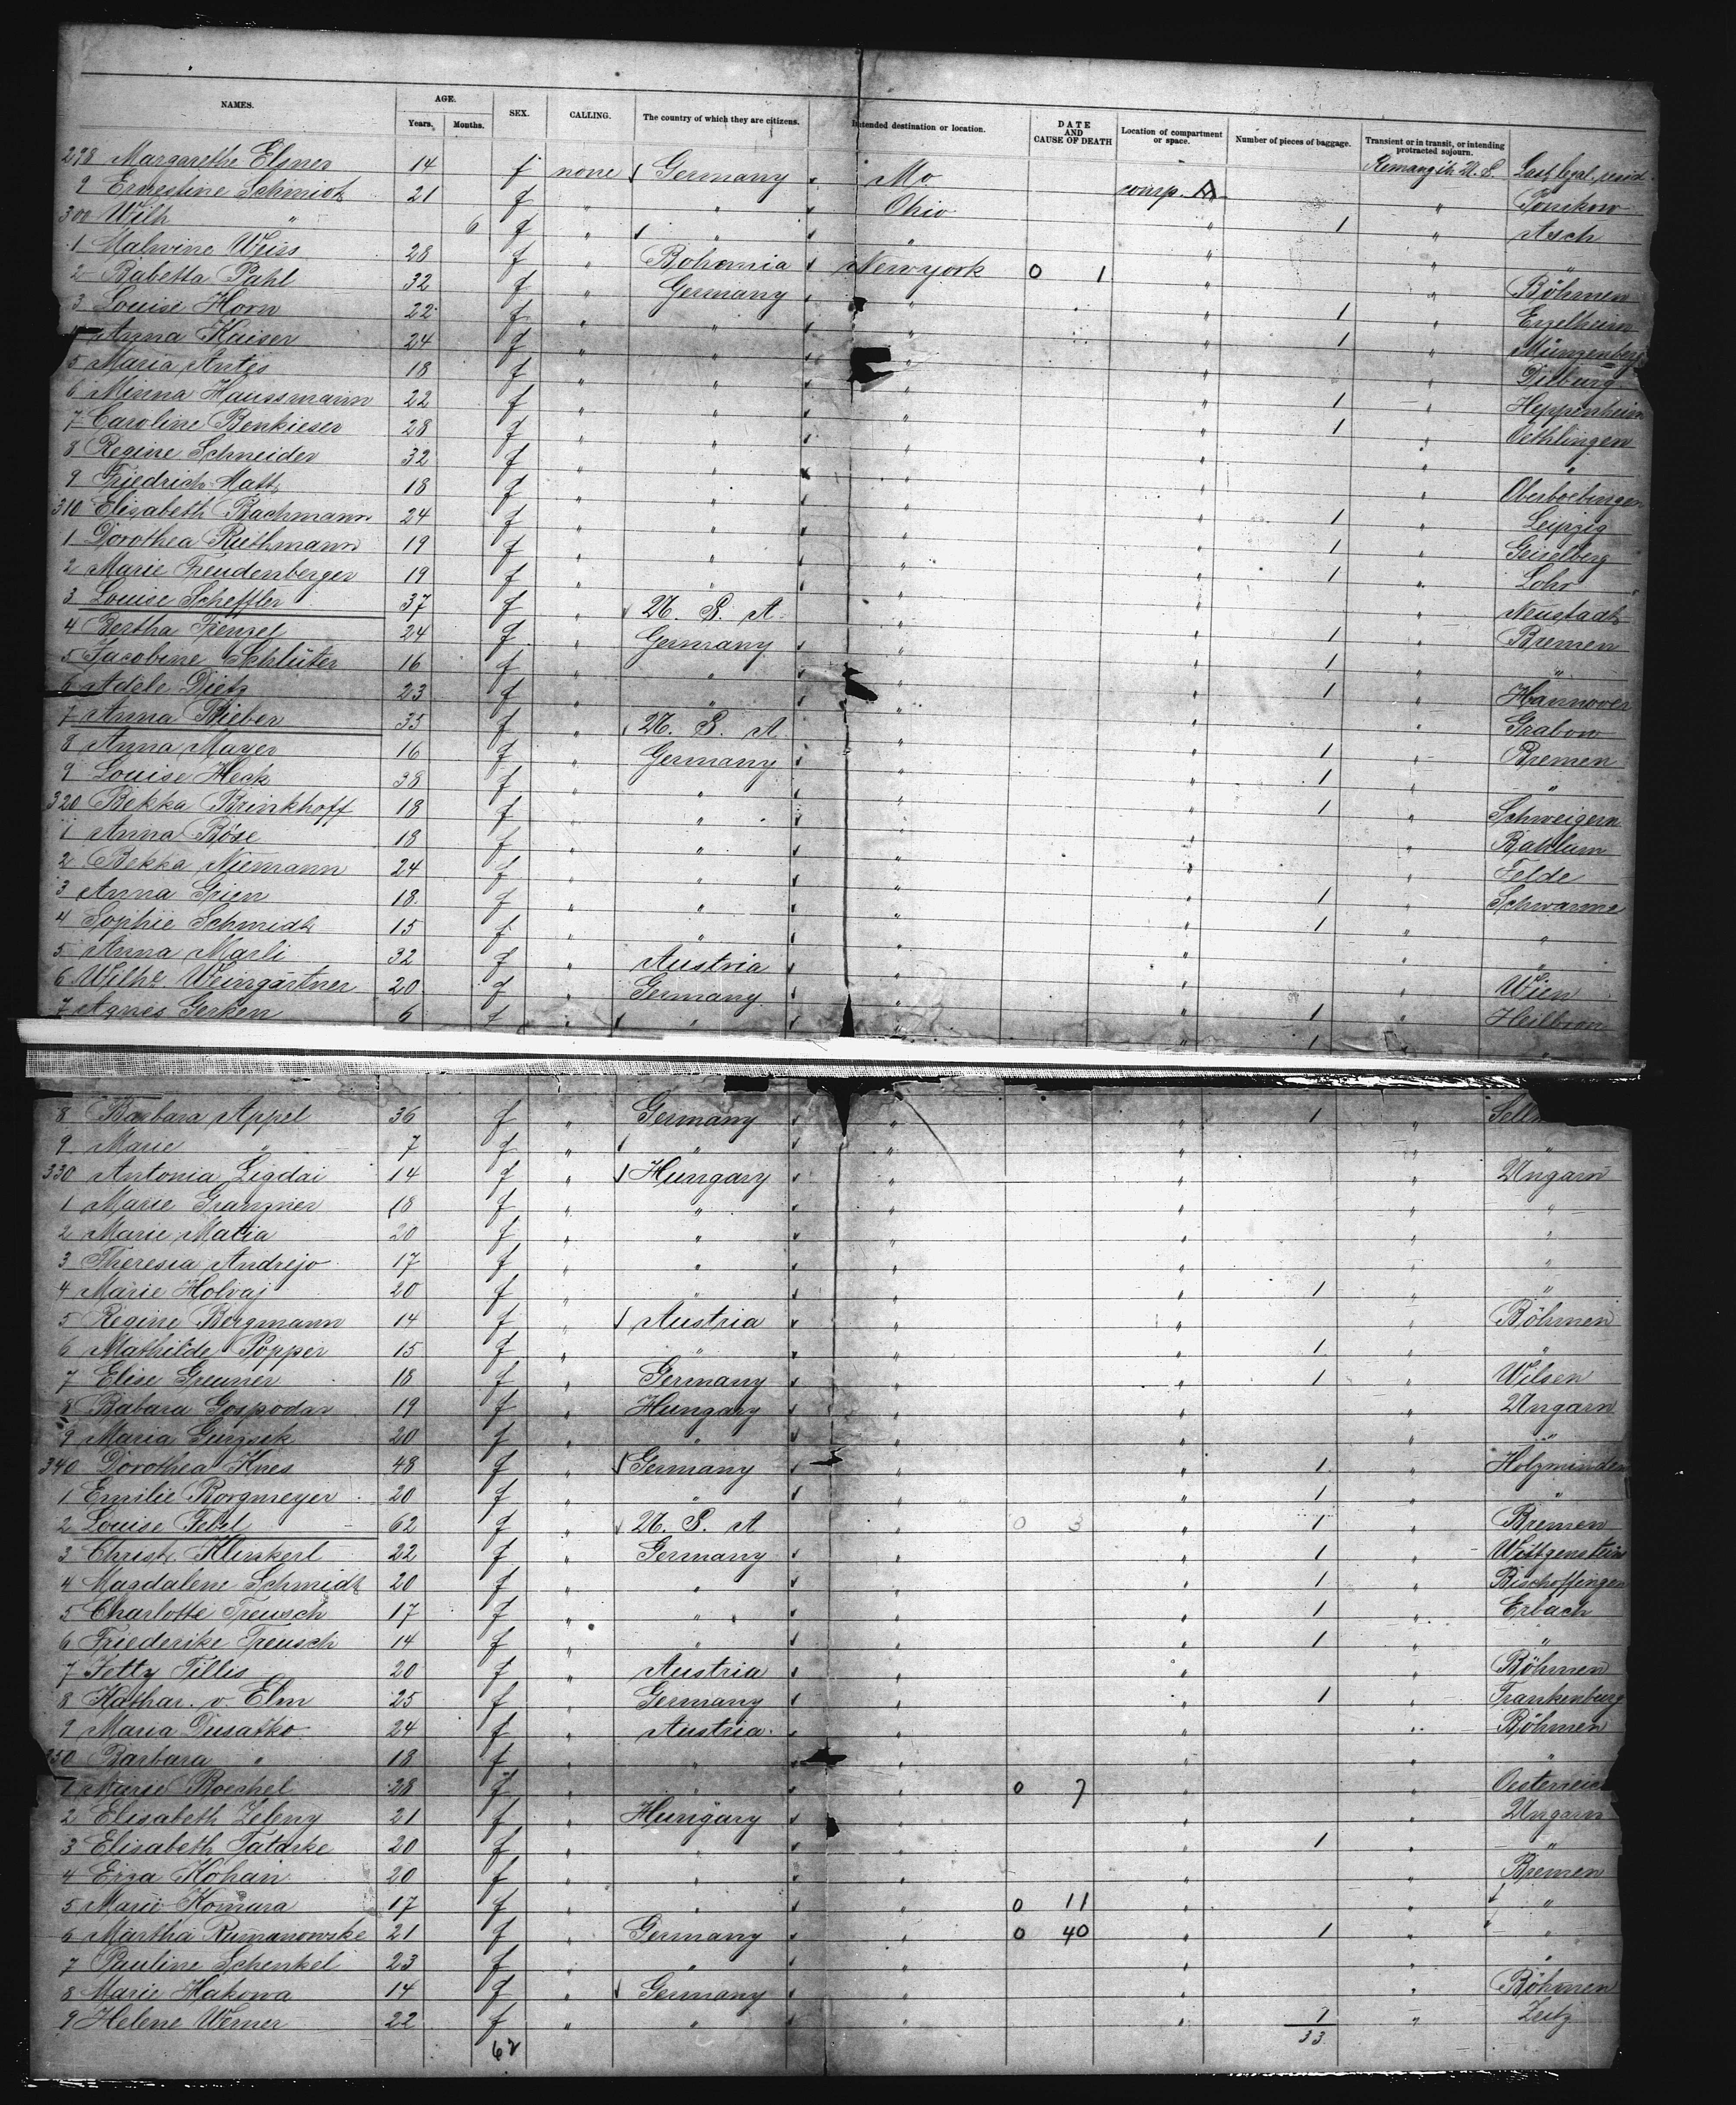 NAMES. AGE. Years. Months. SEX. CALLING. The country of which they are citizens. Intended destination or location. DATE AND CAUSE OF DEATH Location of compartment or space. Number of pieces of baggage. Transient or in transit, or intending protracted sojourn.
298 Margarethe Elsner 14 f none Germany Mo Remang ih U. S. Last legal resid.
9 Ernestine Schmidt 21 f " " Ohio comp. A " Tonskow
300 Wilh " 6 f " " " " 1 " Asch
1 Malwine Weiss 28 f " Bohemia Newyork 0 1 " " "
2 Babetta Pahl 32 f " Germany " " " Böhmen
3 Louise Horn 22 f " " " " 1 " Engelheim
4 Anna Kaiser 24 f " " " " 1 " Münzenberg
5 Maria Antes 18 f " " " " " Dieburg
6 Minna Haussmann 22 f " " " " 1 " Heppenheim
7 Caroline Benkieser 28 f " " " " 1 " Oethlingen
8 Regine Schneider 32 f " " " " " "
9 Friedrich Matt 18 f " " " " " Oberboebingen
310 Elisabeth Bachmann 24 f " " " " 1 " Leipzig
1 Dorothea Ruthmann 19 f " " " " 1 " Geiselberg
2 Marie Freudenberger 19 f " " " " 1 " Lohr
3 Louise Scheffler 37 f " U. S. A. " " Neustadt
4 Bertha Frensel 24 f " Germany " " 1 " Bremen
5 Jacobine Schlüter 16 f " " " " 1 " "
6 Adele Dietz 23 f " " " " 1 " Hannover
7 Anna Bieber 35 f " U. S. A. " " Grabow
8 Anna Mayer 16 f " Germany " " 1 " Bremen
9 Louise Heck 38 f " " " " 1 " "
320 Bekka Brinkhoff 18 f " " " " 1 " Schweigern
1 Anna Böse 18 f " " " " " Bahlum
2 Bekka Niemann 24 f " " " " " Felde
3 Anna Grien 18 f " " " " 1 " Schwarme
4 Sophie Schmidt 15 f " " " " 1 " "
5 Anna Marli 32 f " Austria " " " "
6 Wilhe. Weingärtner 20 f " Germany " " " Wien
7 Agnes Gerken 6 f " " " " 1 " Heilbron
" 1 " "
8 Barbara Appel 36 f " Germany " " 1 "
9 Marie " 7 f " " " " " "
330 Antonia Ligdai 14 f " Hungary " " " Ungarn
1 Marie Grangner 18 f " " " " " "
2 Marie Matia 20 f " " " " " "
3 Theresia Andrejo 17 f " " " " " "
4 Marie Holvaj 20 f " " " " 1 " "
5 Regine Bergmann 14 f " Austria " " " Böhmen
6 Mathilde Popper 15 f " " " " 1 " "
7 Elise Greuner 18 f " Germany " " 1 " Wilsen
8 Babara Gospodar 19 f " Hungary " " " Ungarn
9 Maria Gurgsik 20 f " " " " " "
340 Dorothea Knes 48 f " Germany " " 1 " Holzminden
1 Emilie Borgmeyer 20 f " " " " 1 " "
2 Louise Febel 62 f " U. S. A " 0 3 " 1 " Bremen
3 Christ. Klinkerl 22 f " Germany " " 1 " Wittgenstein
4 Magdalene Schmidt 20 f " " " " 1 " Bischoffingen
5 Charlotte Treusch 17 f " " " " 1 " Erbach
6 Friederike Treusch 14 f " " " " 1 " "
7 Jetty Tillis 20 f " Austria " " " Böhmen
8 Kathar. v. Elm 25 f " Germany " " 1 " Frankenburg
9 Maria Dusatko 24 f " Austria " " " Böhmen
350 Barbara " 18 f " " " " " "
1 Marie Boechel 28 f " " " 0 7 " " Oesterreich
2 Elisabeth Zeleny 21 f " Hungary " " " Ungarn
3 Elisabeth Tatarke 20 f " " " " 1 " "
4 Erza Kohain 20 f " " " " " Bremen
5 Marie Komara 17 f " " " 0 11 " " "
6 Martha Rumanowske 21 f " Germany " 0 40 " 1 " "
7 Pauline Schenkel 23 f " " " " " "
8 Marie Hakowa 14 f " Germany " " " Böhmen
9 Helene Werner 22 f " " " " 1 " Zeitz
62 33